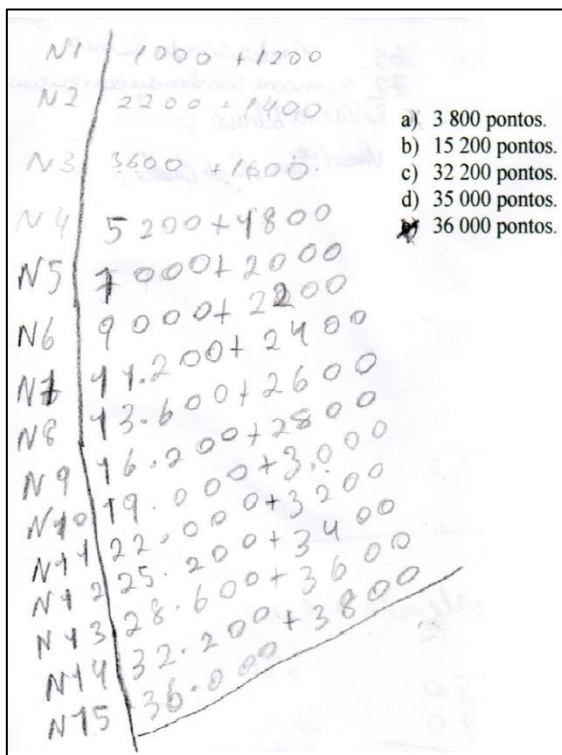 N1 1000 + 1200
N2 2200 + 1400
N3 3600 + 1600.
N4 5200 + 1800
N5 7000 + 2000
N6 9000 + 2200
N7 11.200 + 2400
N8 13.600 + 2600
N9 16.200 + 2800
N10 19.000 + 3.000
N11 22.000 + 3200
N12 25.200 + 3400
N13 28.600 + 3600
N14 32.200 + 3800
N15 36.000
a) 3 800 pontos.
b) 15 200 pontos.
c) 32 200 pontos.
d) 35 000 pontos.
e) 36 000 pontos.